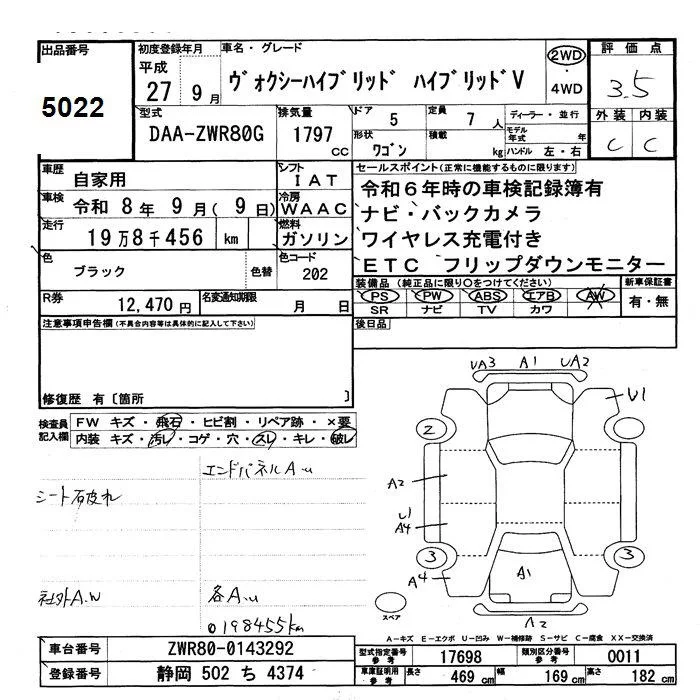 出品番号
5022
初度登録年月
平成
27 9月
車名・グレード
ヴォクシーハイブリッド ハイブリッドV
2WD
・
4WD
評価点
3.5
外装 内装
C C
型式
DAA-ZWR80G
排気量
1797
cc
ドア
5
定員
7人
形状
ワゴン
積載
kg
ディーラー・並行
モデル年式 年
ハンドル 左・右
車歴
自家用
シフト
IAT
車検
令和 8年 9月( 9日)
冷房
WAAC
走行
19万8千456 km
燃料
ガソリン
色
ブラック
色替
色コード
202
R券
12,470円
名変通知期限
月 日
セールスポイント(正常に機能するものに限ります)
令和6年時の車検記録簿有
ナビ・バックカメラ
ワイヤレス充電付き
ETC フリップダウンモニター
装備品(純正品に限り○をつけてください)
PS PW ABS エアB AW
SR ナビ TV カワ
新車保証書
有・無
後日品
注意事項申告欄(不具合内容等は具体的に記入して下さい)
修復歴 有〔箇所 〕
検査員記入欄
FW キズ・飛石・ヒビ割・リペア跡・×要
内装 キズ・汚レ・コゲ・穴・スレ・キレ・破レ
エンドパネルA.u
シート破れ
社外A.W
各A.u
198455km
UA3 A1 UA2
U1
2
A2
U1
A4
3
A4
A1
3
A2
スペア
A-キズ E-エクボ U-凹み W-補修跡 S-サビ C-腐食 XX-交換済
車台番号
ZWR80-0143292
登録番号
静岡 502 ち 4374
型式指定番号
参考
17698
類別区分番号
参考
0011
車庫証明用
参考
長さ
469 cm
幅
169 cm
高さ
182 cm